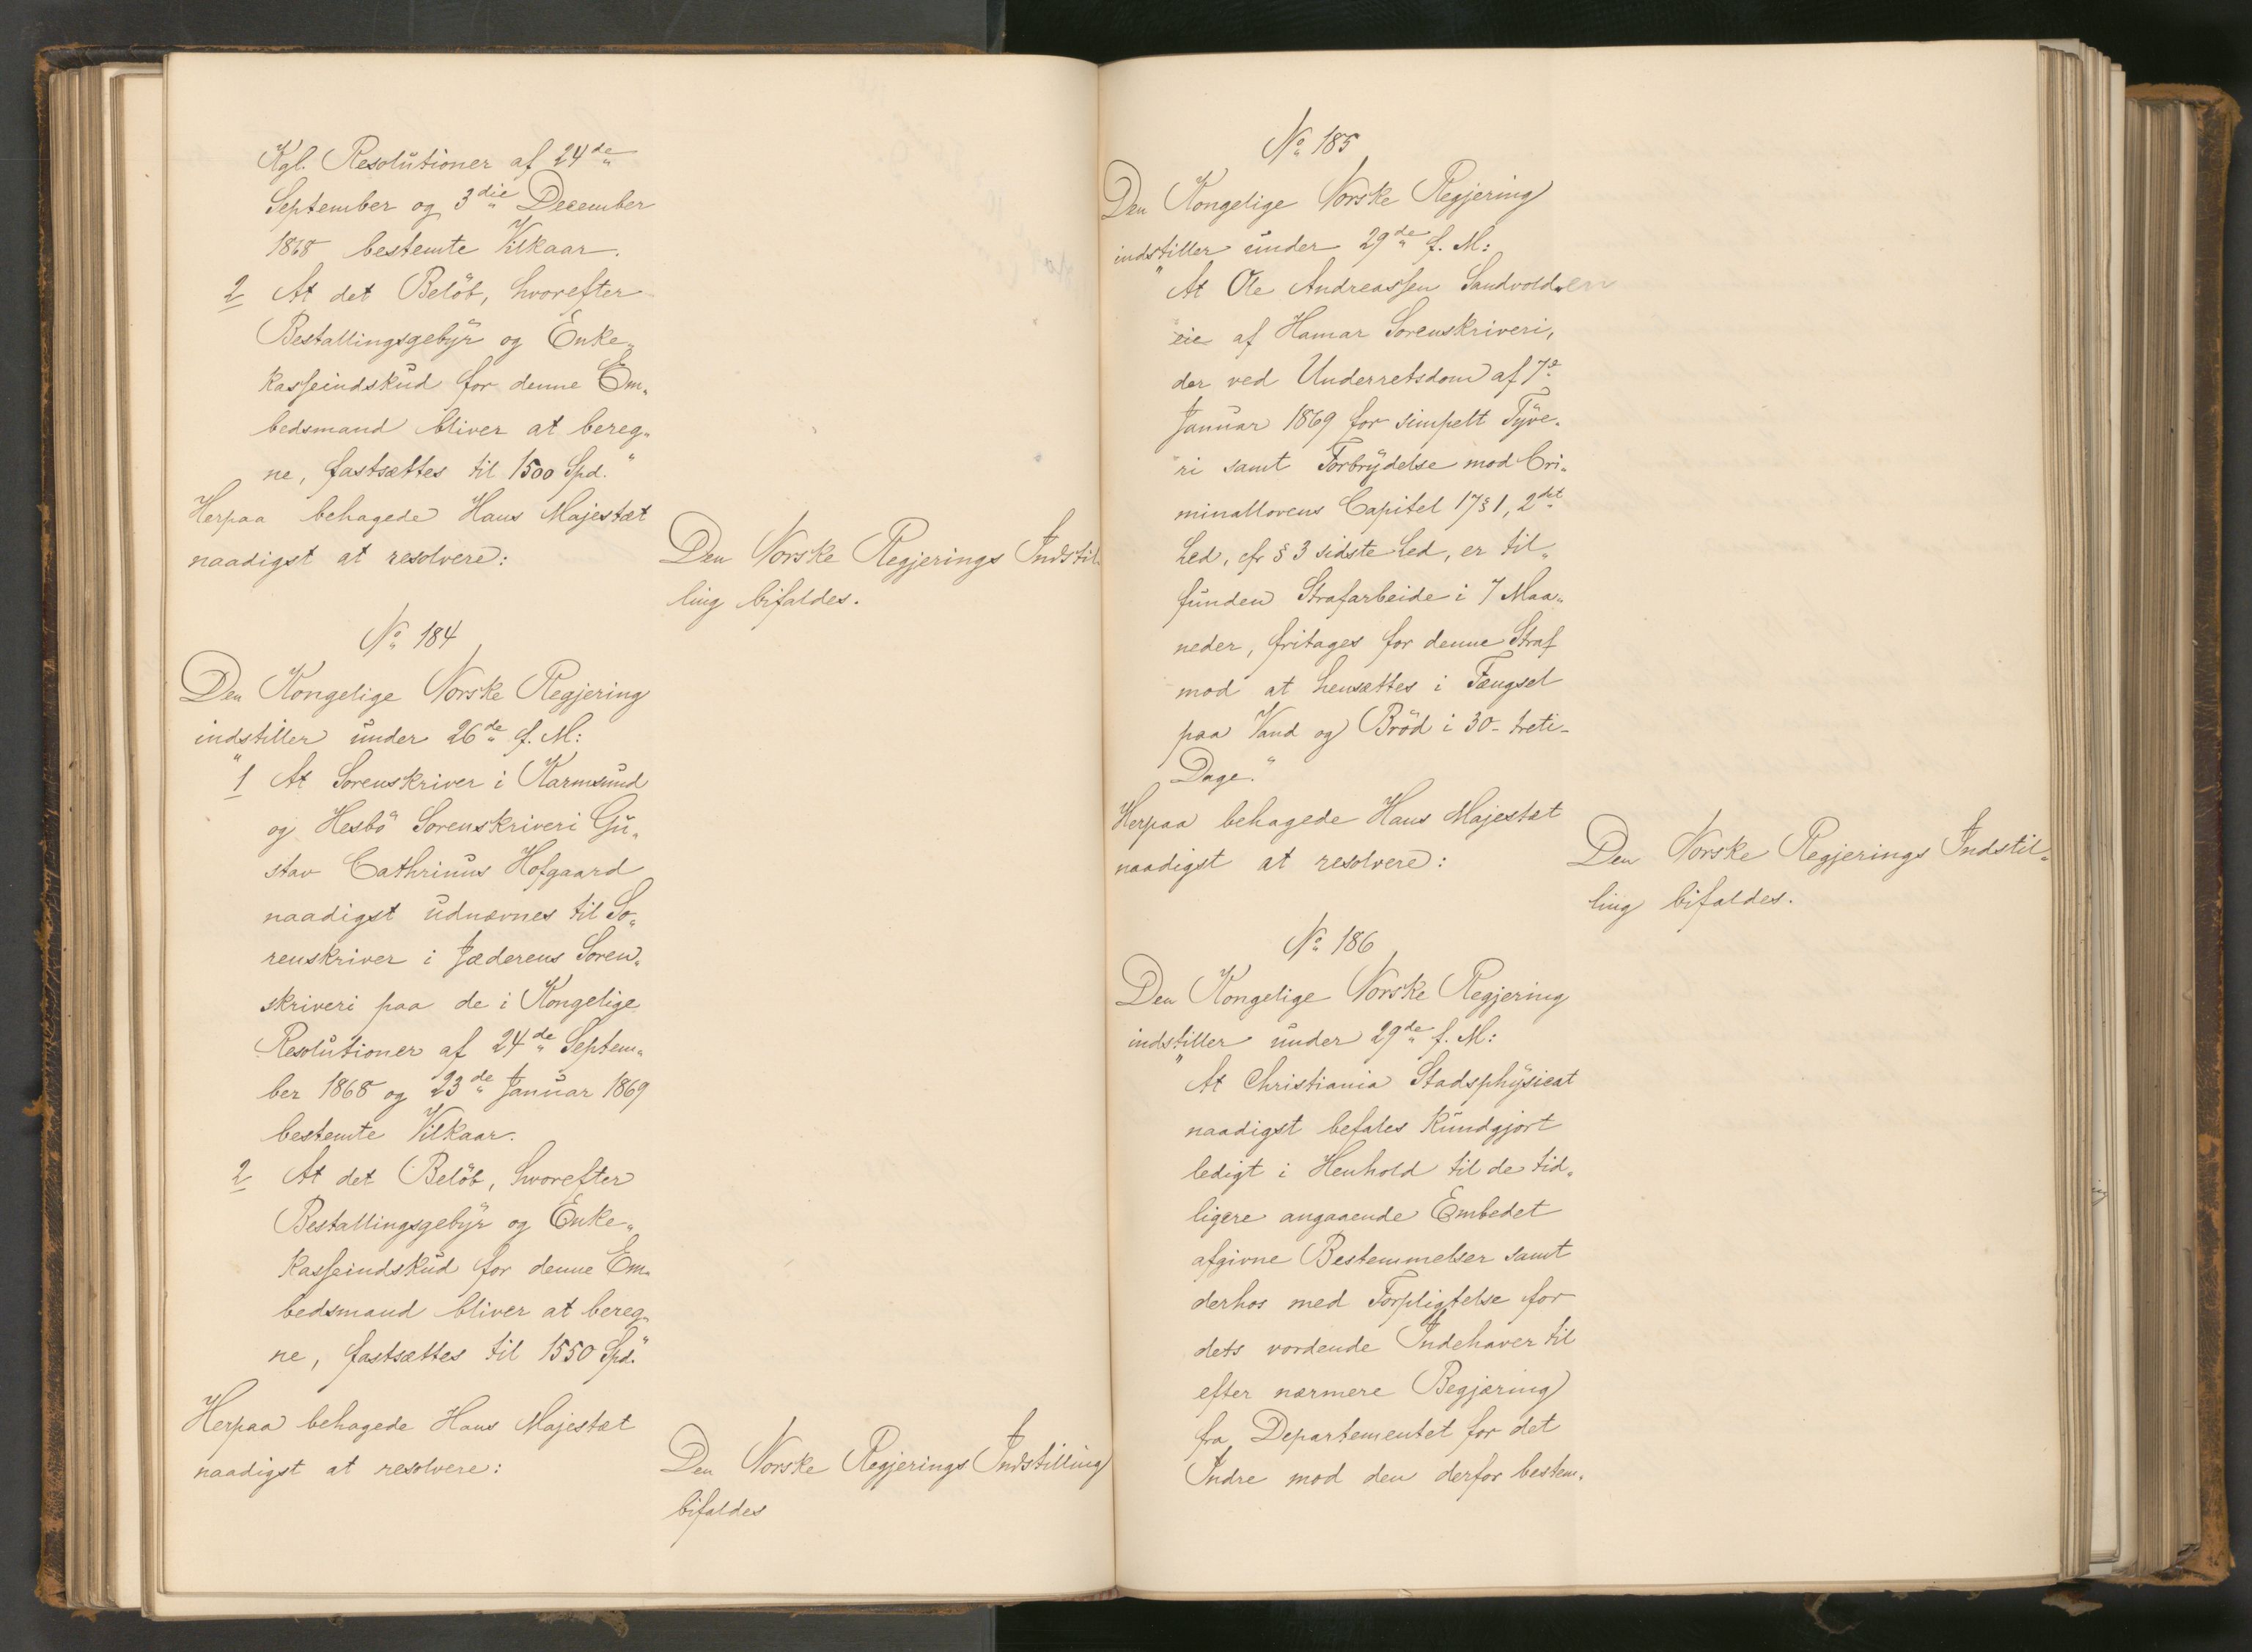 Kgl. Resolutioner af 24de
September og 3die December
1868 bestemte Vilkaar.
2 At det Beløb, hvorefter
Bestallingsgebyr og Enke„
kasseindskud for denne Em„
bedsmand bliver at bereg„
ne, fastsættes til 1500 Spd."
Herpaa behagede Hans Majestæt
naadigst at resolvere:
Den Norske Regjerings Indstil„
ling bifaldes.
No 184
Den Kongelige Norske Regjering
indstiller under 26de f. M:
"1 At Sorenskriver i Karmsund
og Hesbø Sorenskriveri Gu„
stav Cathrinus Hofgaard
naadigst udnævnes til So„
renskriver i Jæderens Soren„
skriveri paa de i Kongelige
Resolutioner af 24de Septem„
ber 1868 og 23de Januar 1869
bestemte Vilkaar.
2 At det Beløb, hvorefter
Bestallingsgebyr og Enke„
kasseindskud for denne Em„
bedsmand bliver at bereg„
ne, fastsættes til 1550 Spd."
Herpaa behagede Hans Majestæt
naadigst at resolvere:
Den Norske Regjerings Indstilling
bifaldes
No 185
Den Kongelige Norske Regjering
indstiller under 29de f. M:
"At Ole Andreassen Sandvolden
eie af Hamar Sorenskriveri,
der ved Underretsdom af 7de
Januar 1869 for simpelt Tyve„
ri samt Forbrydelse mod Cri„
minallovens Capitel 17 § 1, 2det
Led, cfr § 3 sidste Led, er til„
funden Strafarbeide i 7 Maa„
neder, fritages for denne Straf
mod at hensættes i Fængsel
paa Vand og Brød i 30 - treti -
Dage."
Herpaa behagede Hans Majestæt
naadigst at resolvere:
Den Norske Regjerings Indstil„
ling bifaldes.
No 186
Den Kongelige Norske Regjering
indstiller under 29de f. M:
"At Christiania Stadsphysicat
naadigst befales kundgjort
ledigt i Henhold til de tid„
ligere angaaende Embedet
afgivne Bestemmelser samt
derhos med Forpligtelse for
dets vordende Indehaver til
efter nærmere Begjæring
fra Departementet for det
Indre mod den derfor bestem„